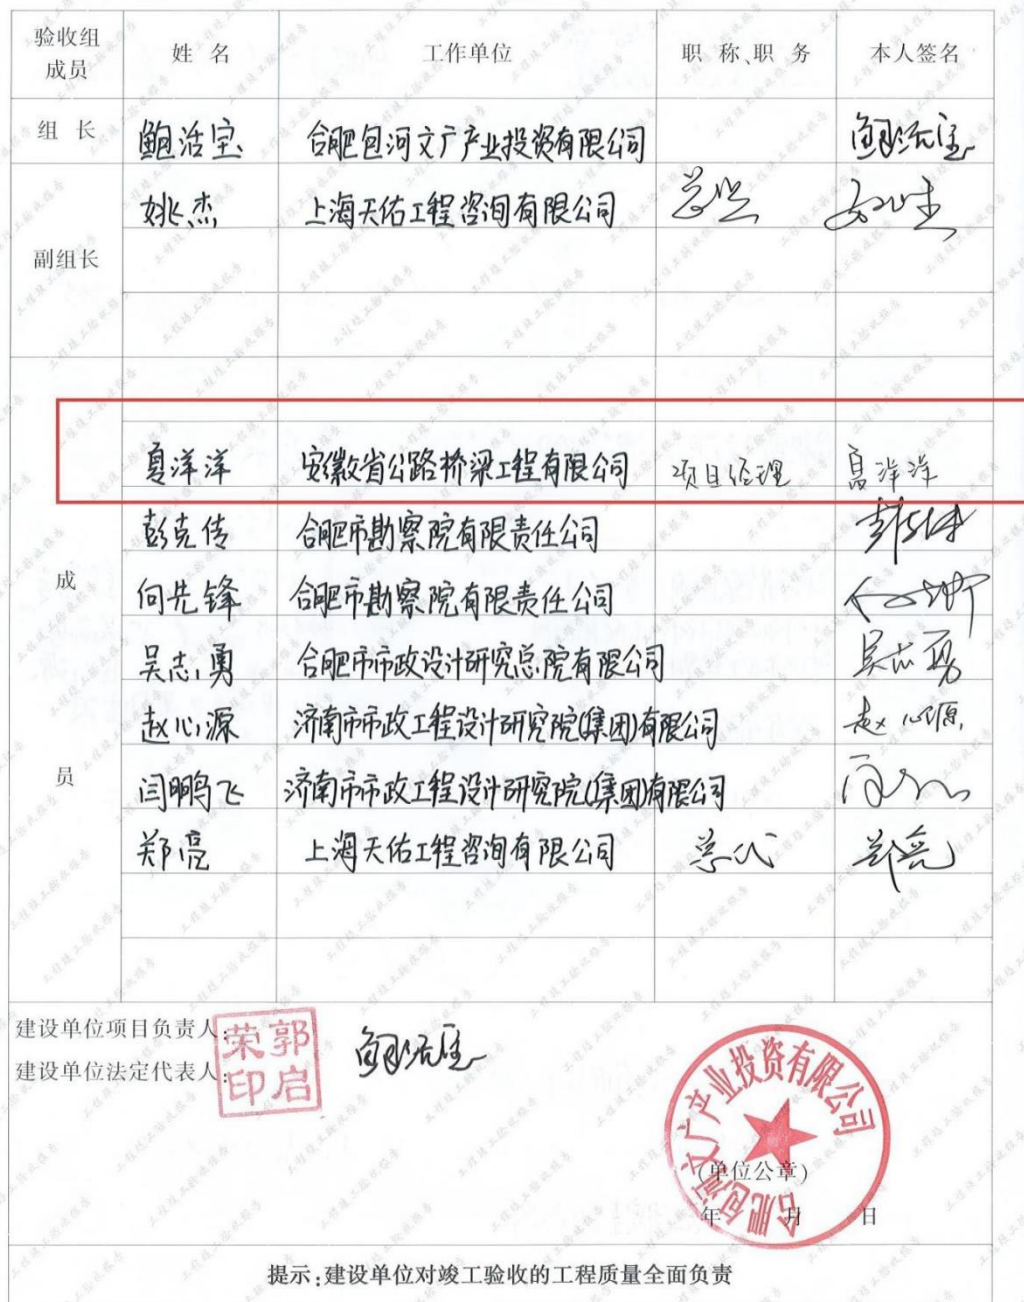 验收组成员 姓 名 工作单位 职 称、职 务 本人签名
组 长 鲍活宝 合肥包河文广产业投资有限公司 鲍活宝
副组长 姚杰 上海天佑工程咨询有限公司 总监 姚杰
成员
夏洋洋 安徽省公路桥梁工程有限公司 项目经理 夏洋洋
彭克传 合肥市勘察院有限责任公司 彭克传
向先锋 合肥市勘察院有限责任公司
吴志勇 合肥市市政设计研究总院有限公司 吴志勇
赵心源 济南市市政工程设计研究院(集团)有限公司 赵心源
闫鹏飞 济南市市政工程设计研究院(集团)有限公司
郑亮 上海天佑工程咨询有限公司 总代 郑亮
建设单位项目负责人: 鲍活宝
建设单位法定代表人: 郭启荣印
合肥包河文广产业投资有限公司
(单位公章)
年 月 日
提示:建设单位对竣工验收的工程质量全面负责
工程竣工验收报告